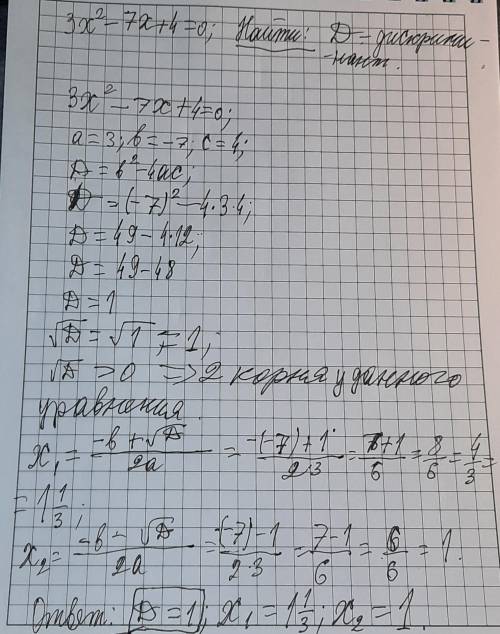 3x² - 7x + 4 = 0; Найти: D - дискрими-
-нант.
3x² - 7x + 4 = 0;
a = 3; b = -7; c = 4;
D = b² - 4ac;
D = (-7)² - 4·3·4;
D = 49 - 4·12;
D = 49 - 48
D = 1
√D = √1 = 1;
√D > 0 => 2 корня у данного
уравнения.
x₁ = (-b + √D)/2a = (-(-7) + 1)/(2·3) = (7 + 1)/6 = 8/6 = 4/3 =
= 1 1/3;
x₂ = (-b - √D)/2a = (-(-7) - 1)/(2·3) = (7 - 1)/6 = 6/6 = 1.
Ответ: D = 1; x₁ = 1 1/3; x₂ = 1.